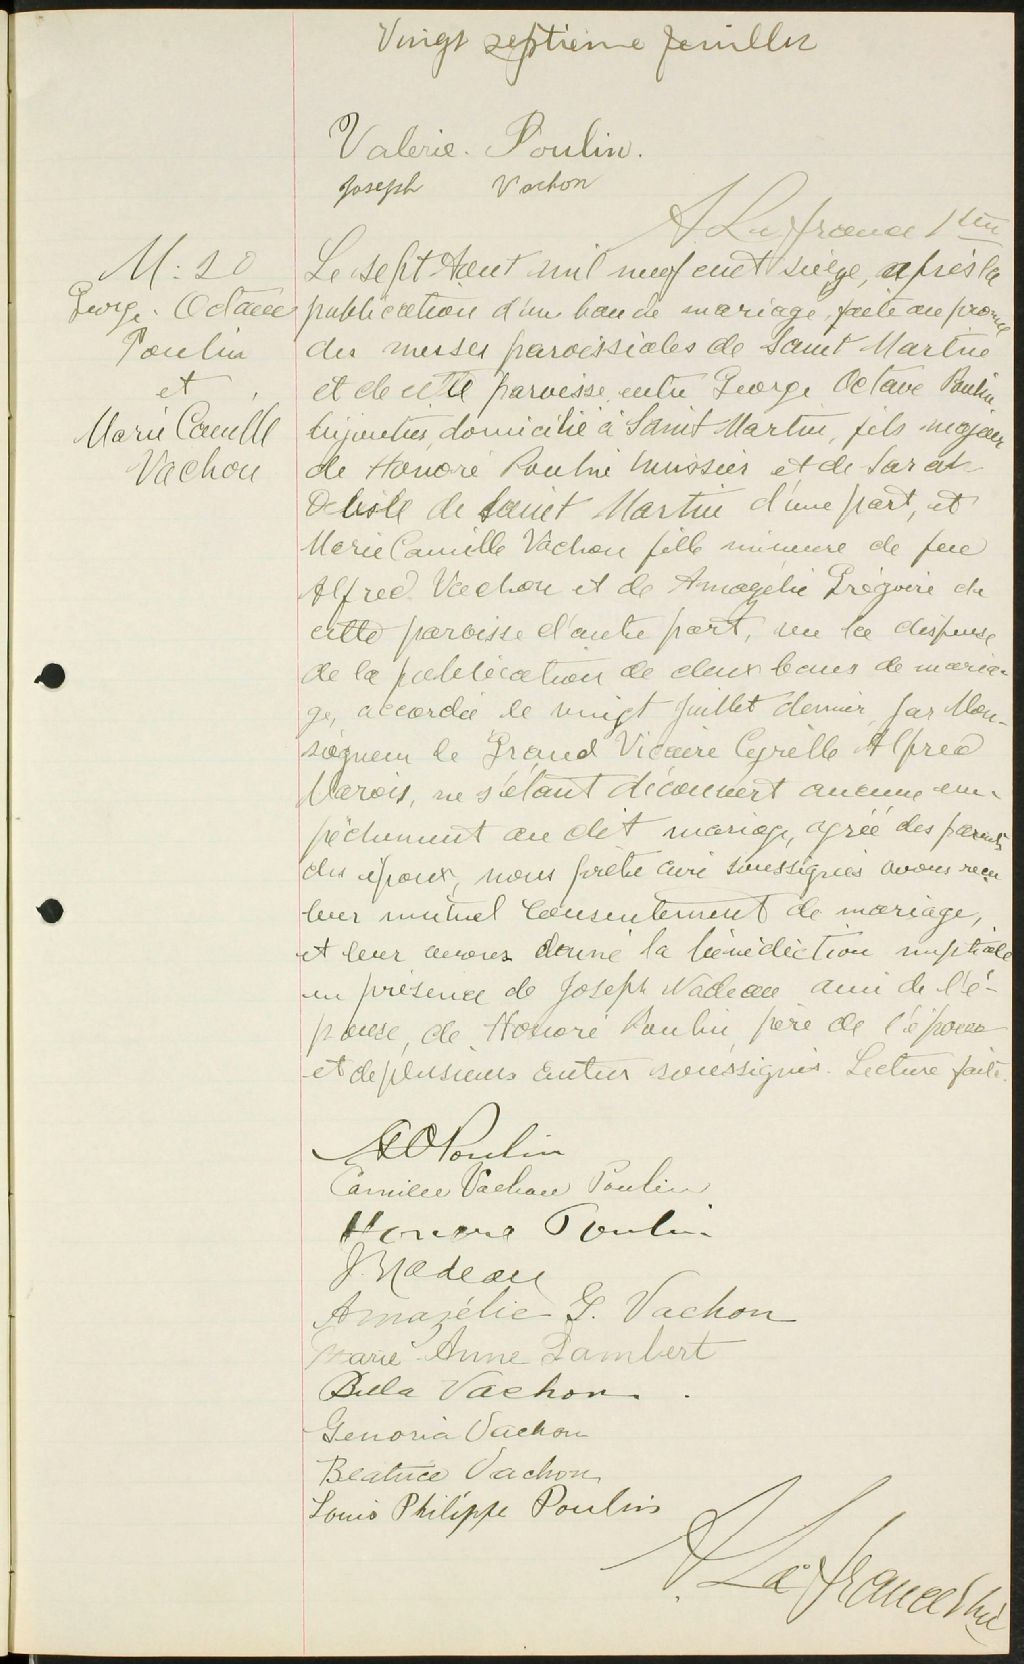 Vingt septième feuillet
Valerie. Poulin.
Joseph Vachon
A. Lafrance Ptre
M: 20
George. Octave
Poulin
et
Marie Camille
Vachon
Le sept Aout mil neuf cent seize, après la
publication d'un ban de mariage, faite au prone
des messes paroissiales de Saint Martin
et de cette paroisse, entre George Octave Poulin,
bijoutier, domicilié à Saint Martin, fils majeur
de Honoré Poulin huissier et de Sarah
de Saint Martin d'une part, et
Marie Camille Vachon fille mineure de feu
Alfred Vachon et de Amazélie Grégoire de
cette paroisse d'autre part, vu la dispense
de la publication de deux bans de maria-
ge, accordée le vingt Juillet dernier, par Mon-
seigneur le Grand Vicaire Cyrille Alfred
Marois, ne s'étant découvert aucun em-
pêchement au dit mariage, agréé des parents
des époux, nous prêtre curé soussignés avons reçu
leur mutuel Consentement de mariage,
et leur avons donné la bénédiction nuptiale
en présence de Joseph Nadeau ami de l'é-
pouse, de Honoré Poulin, père de l'époux
et de plusieurs autres soussignés. Lecture faite.
G O Poulin
Camille Vachon Poulin
Honoré Poulin
J. Nadeau
Amazélie G. Vachon
Marie Anne Lambert
Bella Vachon.
Genoria Vachon
Béatrice Vachon
Louis Philippe Poulin
A. Lafrance Ptre